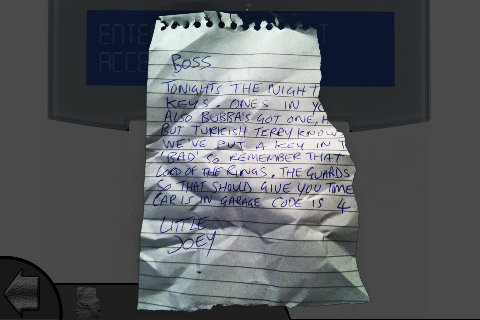 ENTE
ACCE
BOSS
TONIGHTS THE NIGHT
KEYS. ONES IN
ALSO BUBBA'S GOT ONE,
BUT TURKISH TERRY KNOW
WE'VE PUT A KEY IN T
'BAD' SO REMEMBER THAT
LORD OF THE RINGS. THE GUARDS
SO THAT SHOULD GIVE YOU TIME
CAR IS IN GARAGE CODE IS 4
LITTLE
JOEY